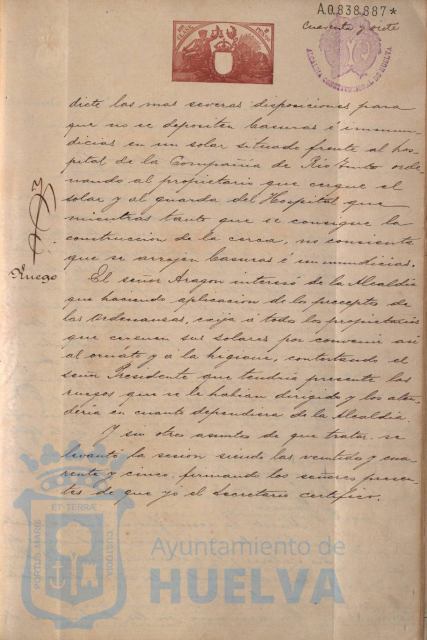 A0838887*
Cuarenta y siete
ALCALDIA CONSTITUCIONAL DE HUELVA
diete las mas severas disposiciones para
que no se depositen basuras é inmun-
dicias en un solar situado frente al hos-
pital de la Compañia de Rio Tinto orde-
nando al propietario que cerque el
solar y al guarda del Hospital que
mientras tanto que se consigue la
construccion de la cerca, no consiente
que se arrojen basuras é inmundicias.
Ruego
El señor Aragon interesó de la Alcaldia
que haciendo aplicacion de los preceptos de
las Ordenansas, exija á todos los propietarios
que cerquen sus solares por convenir asi
al ornato y á la higiene, contestando el
señor Presidente que tendria presente los
ruegos que se le habian dirigido y los aten-
deria en cuanto dependiera de la Alcaldia.
Y sin otros asuntos de que tratar se
levantó la sesion siendo las veintidos y cua-
renta y cinco, firmando los señores presen-
tes de que yo el Secretario certifico.
ET TERRÆ
PORTUS MARIS
CUSTODIA
Ayuntamiento de
HUELVA